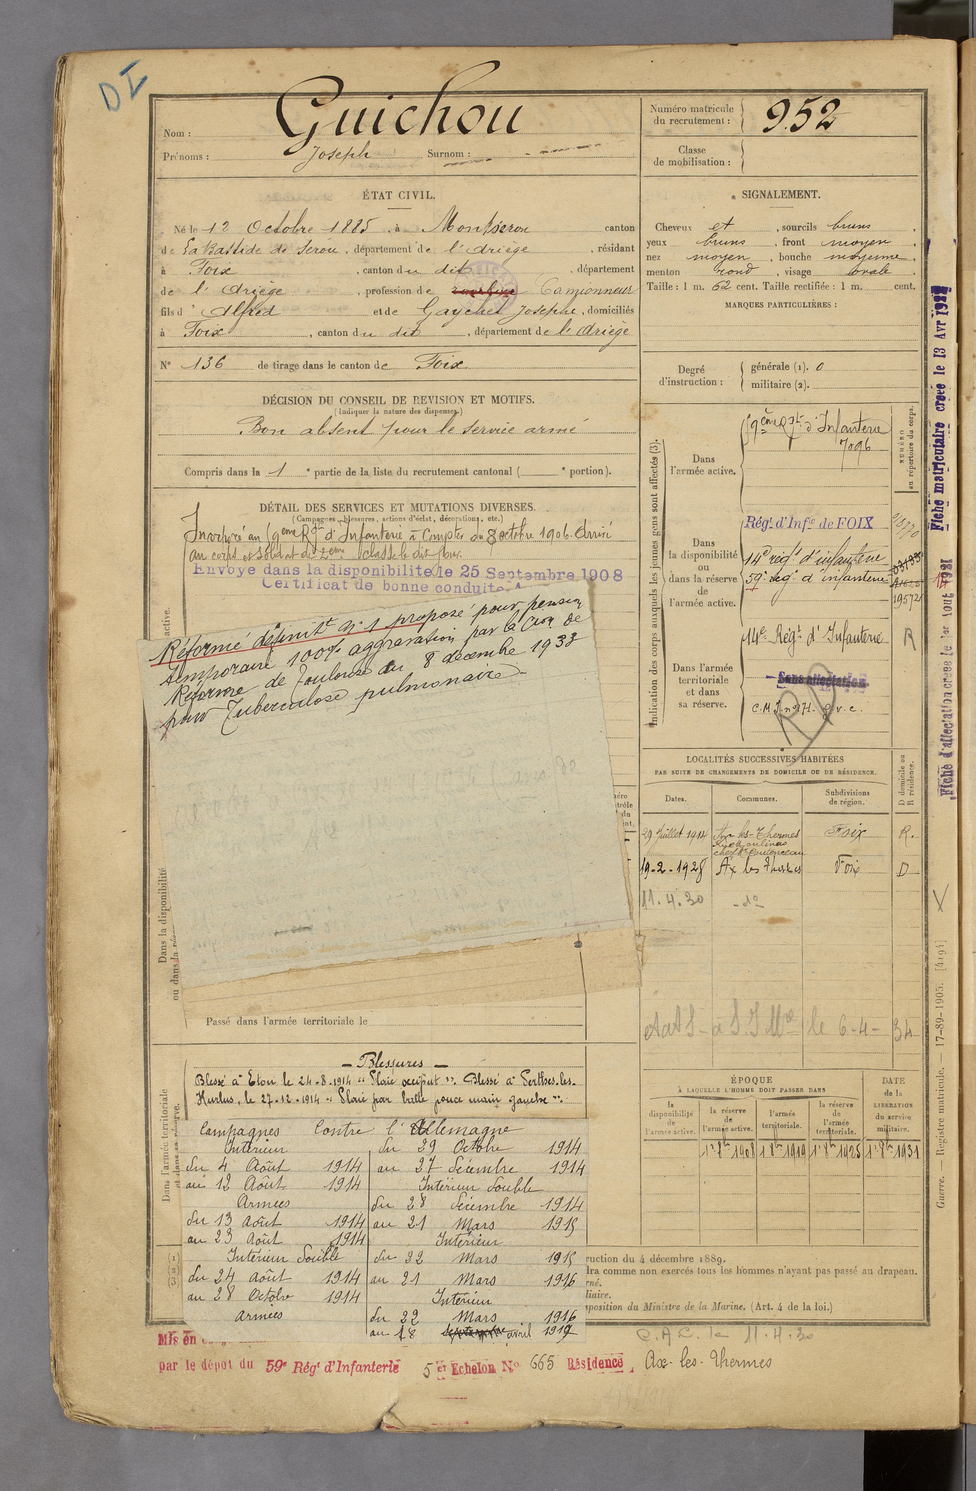 DI
Nom : Guichou
Prénoms : Joseph Surnom :
Numéro matricule du recrutement : 952
Classe de mobilisation :
ÉTAT CIVIL.
Né le 12 Octobre 1885, à Montseron canton
de La Bastide de Serou, département de l'Ariège, résidant
à Foix, canton du dit, département
de l'Ariège, profession de Camionneur
fils d'Alfred et de Gaychet Josephe, domiciliés
à Foix, canton du dit, département de l'Ariège
N° 136 de tirage dans le canton de Foix
SIGNALEMENT.
Cheveux et, sourcils bruns,
yeux bruns, front moyen,
nez moyen, bouche moyenne,
menton rond, visage ovale.
Taille : 1 m. 62 cent. Taille rectifiée : 1 m. cent.
MARQUES PARTICULIÈRES :
Degré d'instruction : générale (1). 0
militaire (2).
DÉCISION DU CONSEIL DE REVISION ET MOTIFS.
(Indiquer la nature des dispenses.)
Bon absent pour le service armé
Compris dans la 1e partie de la liste du recrutement cantonal ( e portion).
DÉTAIL DES SERVICES ET MUTATIONS DIVERSES.
(Campagnes, blessures, actions d'éclat, décorations, etc.)
Incorporé au 9ème Rgt d'Infanterie à compter du 8 octobre 1906. Arrivé
au corps et soldat de 2ème classe le dit jour.
Envoyé dans la disponibilité le 25 Septembre 1908
Certificat de bonne conduite.
Réformé définitt n° 1 proposé pour pension
temporaire 100% aggravation par la Cion de
Réforme de Toulouse du 8 décembre 1933
pour Tuberculose pulmonaire
Dans la disponibilité
Passé dans l'armée territoriale le
Dans l'armée territoriale et dans sa réserve.
- Blessures -
Blessé à Eton le 24-8-1914 "Plaie occiput". Blessé à Perthes-les-
Hurlus, le 27-12-1914 "Plaie par balle pouce main gauche".
Campagnes Contre l'Allemagne
Intérieur
du 4 Août 1914
au 12 Août 1914
Armées
du 13 Août 1914
au 23 Août 1914
Intérieur double
du 24 Août 1914
au 28 Octobre 1914
Armées
du 29 Octobre 1914
au 27 décembre 1914
Intérieur double
du 28 décembre 1914
au 21 Mars 1915
Intérieur
du 22 Mars 1915
au 21 Mars 1916
Intérieur
du 22 Mars 1916
au 18 avril
Indication des corps auxquels les jeunes gens sont affectés (3).
NUMÉRO au répertoire du corps.
Dans l'armée active.
9ème Rgt d'Infanterie
7096
Dans la disponibilité ou dans la réserve de l'armée active.
Régt d'Infie de FOIX
14e régt d'infanterie
59e régt d'infanterie
19572
Dans l'armée territoriale et dans sa réserve.
14e Régt d'Infanterie R
Sans affectation
C.M.I. n° 171. g.v.c.
LOCALITÉS SUCCESSIVES HABITÉES
PAR SUITE DE CHANGEMENTS DE DOMICILE OU DE RÉSIDENCE.
Dates. Communes. Subdivisions de région. D domicile ou R résidence.
29 Juillet 1914 Ax-les-Thermes Foix R.
19-2-1928 Ax les Thermes Foix D
11.4.30 -do-
le 6-4-34
ÉPOQUE
À LAQUELLE L'HOMME DOIT PASSER DANS
la disponibilité de l'armée active.
la réserve de l'armée active.
l'armée territoriale.
la réserve de l'armée territoriale.
DATE de la LIBÉRATION du service militaire.
1er 8bre 1908 1er 8bre 1919 1er 8bre 1925 1er 8bre 1931
(1)
(2)
(3)
ruction du 4 décembre 1889.
dra comme non exercés tous les hommes n'ayant pas passé au drapeau.
position du Ministre de la Marine. (Art. 4 de la loi.)
Mis en
par le dépôt du 59e Régt d'Infanterie 5 er Echelon No 665 Résidence, Ax-les-Thermes
11.4.30
Fiche matriculaire créée le 13 Avr
Fiche d'affectation créée le 1er Aout 1921
Guerre. — Registre matricule. — 17-89-1905. [4194]